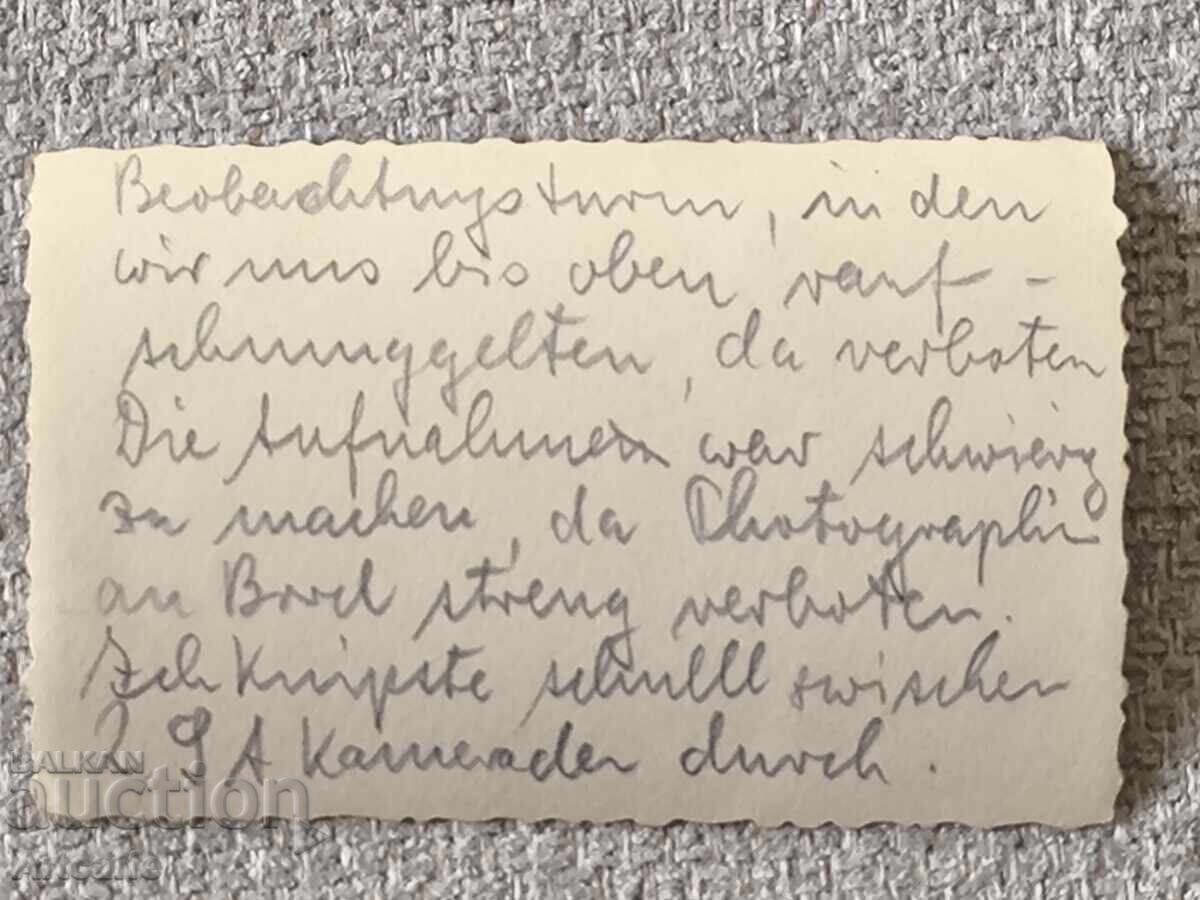 Beobachtungsturm, in den
wir uns bis oben rauf-
schmuggelten, da verboten
Die Aufnahme war schwierig
zu machen, da Photographi
an Bord streng verboten.
Ich knipste schnell zwischen
2 SA Kameraden durch.
BALKAN
auction